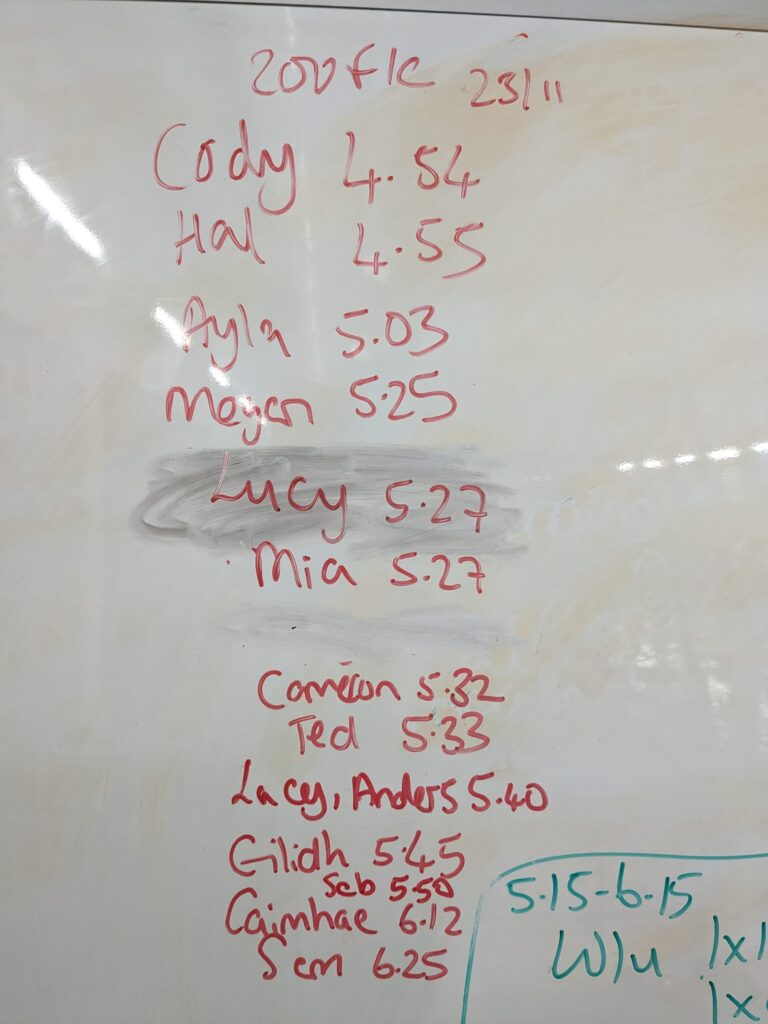 200 F/C 23/11
Cody 4.54
Hal 4.55
Ayla 5.03
Megan 5.25
Lucy 5.27
Mia 5.27
Cameron 5.32
Ted 5.33
Lacey, Anders 5.40
Gilidh 5.45
Seb 5.50
Caimhae 6.12
Sam 6.25
5.15-6.15
W/u 1x1
1x